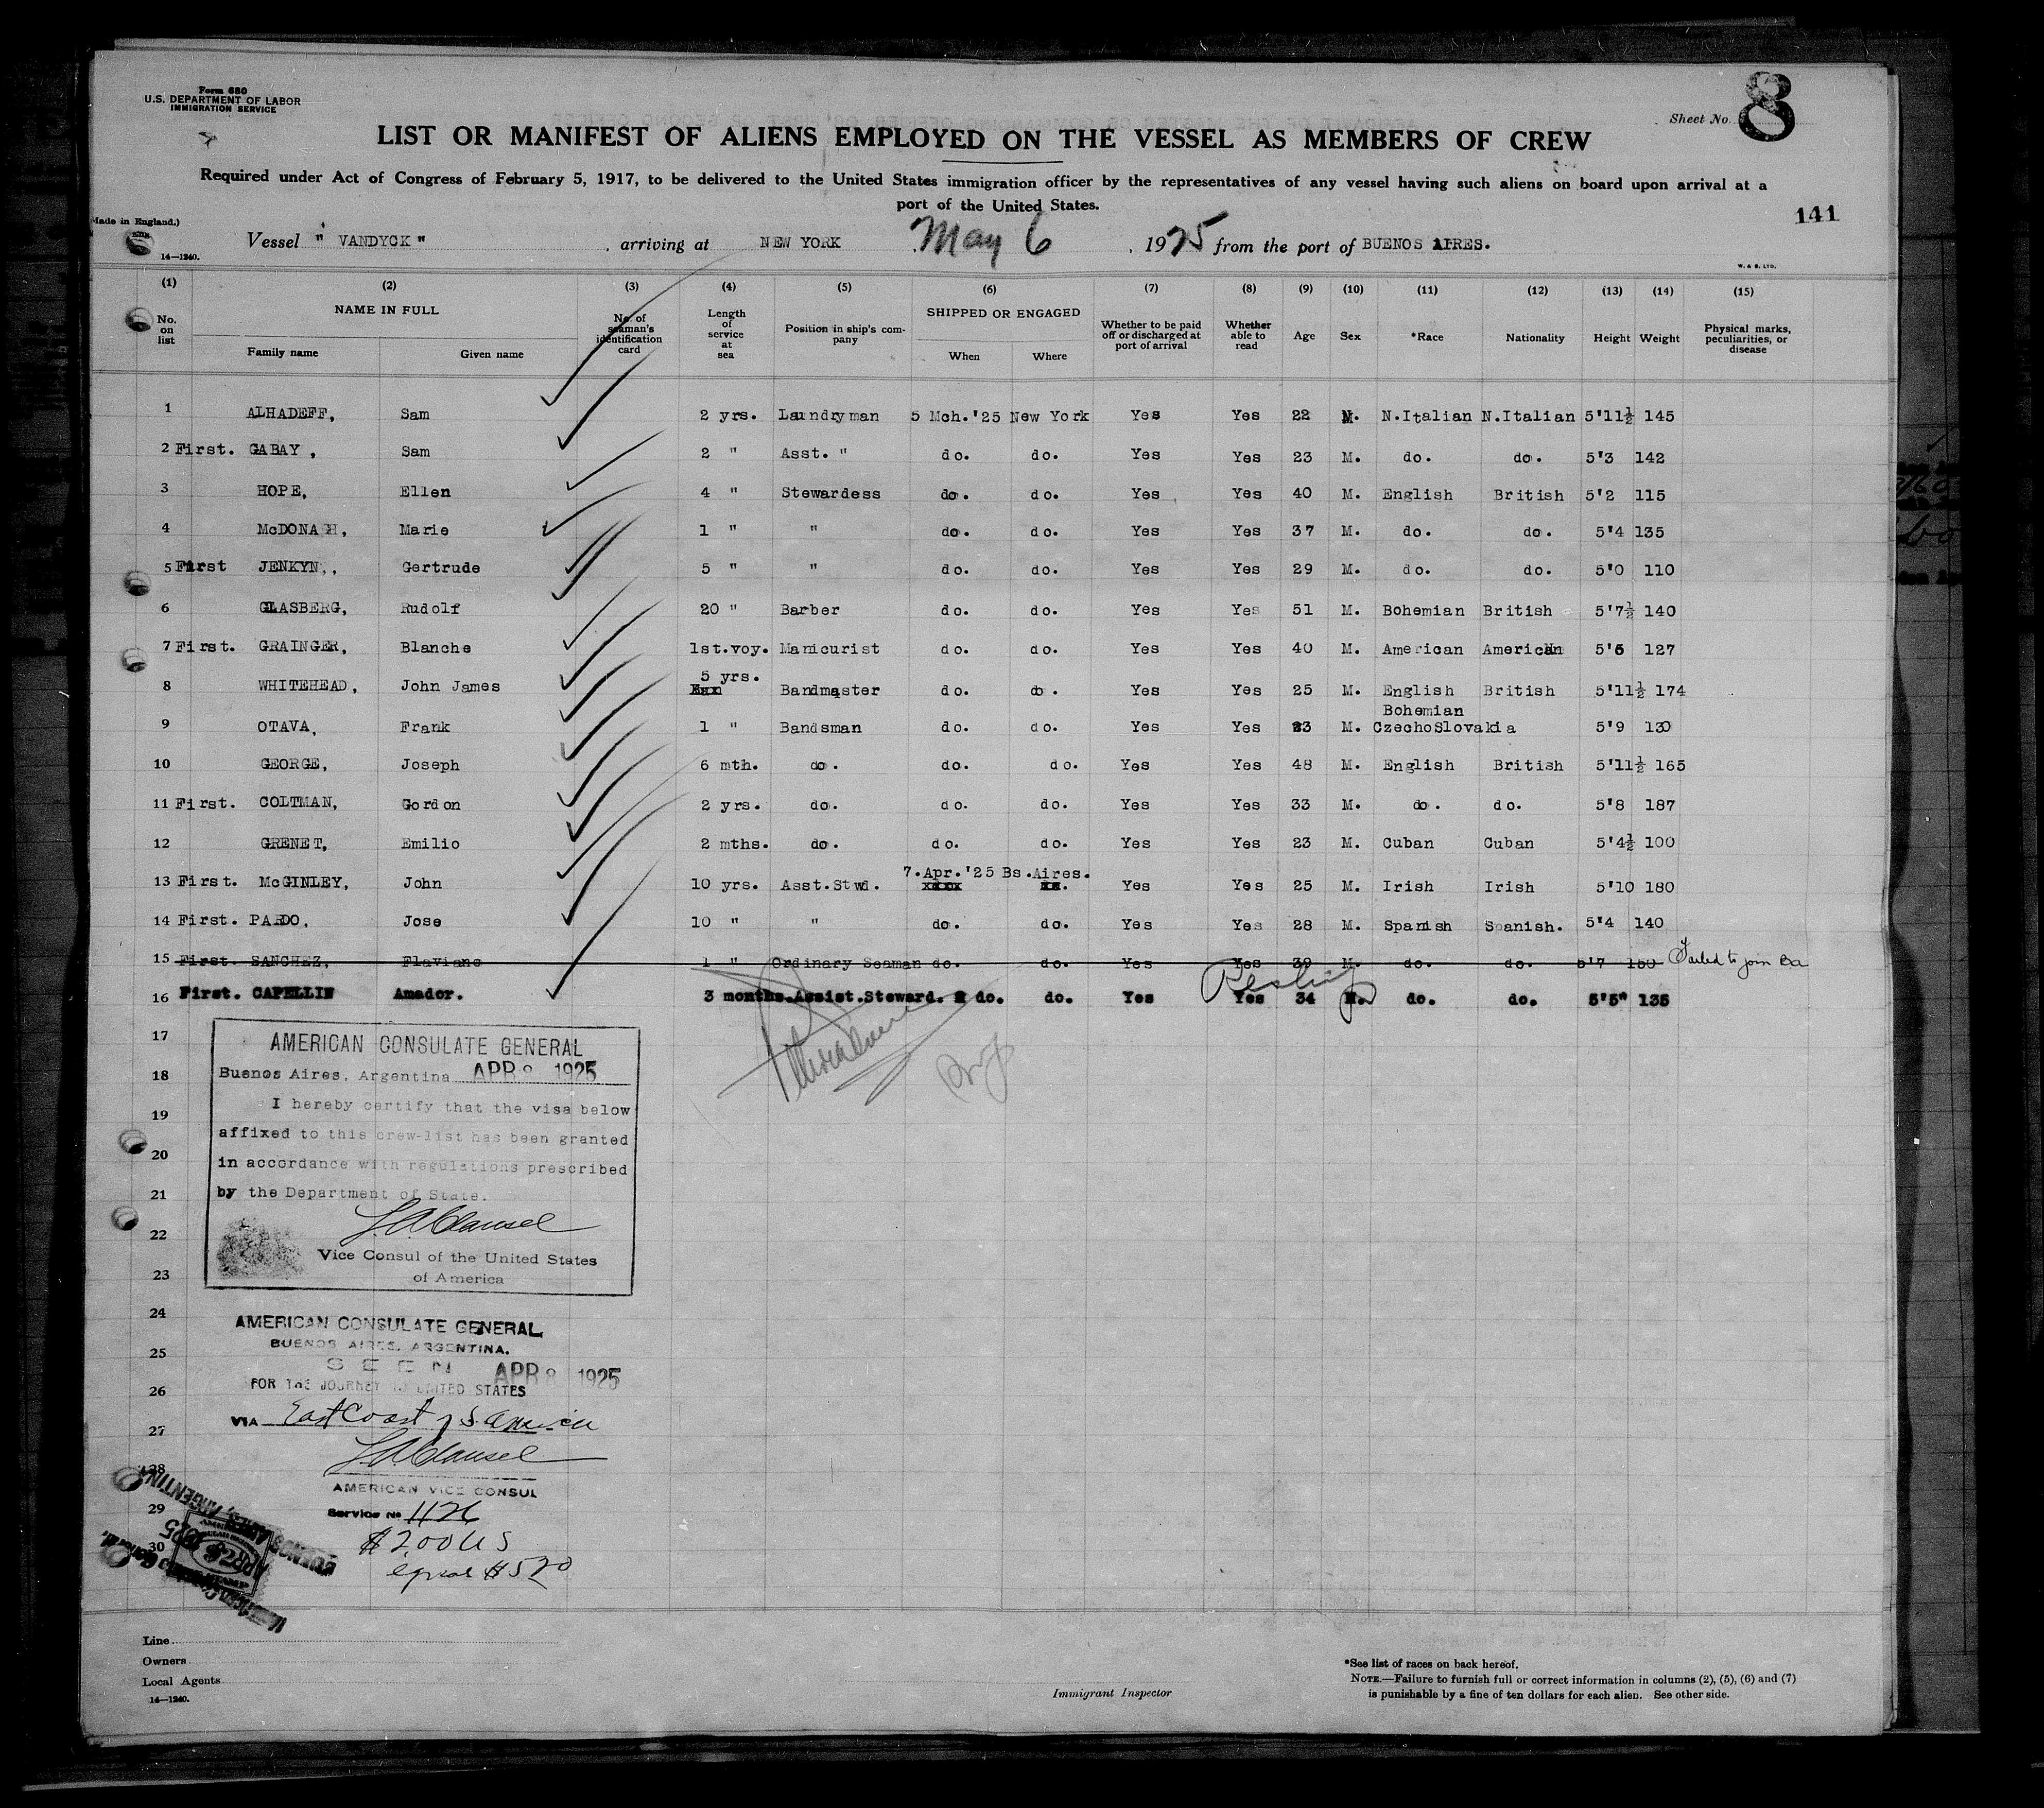 Form 680
U.S. DEPARTMENT OF LABOR
IMMIGRATION SERVICE
Sheet No. 8
LIST OR MANIFEST OF ALIENS EMPLOYED ON THE VESSEL AS MEMBERS OF CREW
Required under Act of Congress of February 5, 1917, to be delivered to the United States immigration officer by the representatives of any vessel having such aliens on board upon arrival at a
port of the United States.
141
Made in England.)
Vessel " VANDYCK " , arriving at NEW YORK , May 6 , 1925 from the port of BUENOS AIRES.
14—1240.
W. & S. LTD.
(1) (2) (3) (4) (5) (6) (7) (8) (9) (10) (11) (12) (13) (14) (15)
No. on list NAME IN FULL Family name Given name No. of seaman's identification card Length of service at sea Position in ship's company SHIPPED OR ENGAGED When Where Whether to be paid off or discharged at port of arrival Whether able to read Age Sex *Race Nationality Height Weight Physical marks, peculiarities, or disease
1 ALHADEFF, Sam 2 yrs. Laundryman 5 Mch.'25 New York Yes Yes 22 M. N.Italian N.Italian 5'11½ 145
2 First. GABAY , Sam 2 " Asst. " do. do. Yes Yes 23 M. do. do. 5'3 142
3 HOPE, Ellen 4 " Stewardess do. do. Yes Yes 40 M. English British 5'2 115
4 McDONAGH, Marie 1 " " do. do. Yes Yes 37 M. do. do. 5'4 135
5 First JENKYN,, Gertrude 5 " " do. do. Yes Yes 29 M. do. do. 5'0 110
6 GLASBERG, Rudolf 20 " Barber do. do. Yes Yes 51 M. Bohemian British 5'7½ 140
7 First. GRAINGER, Blanche 1st.voy. Manicurist do. do. Yes Yes 40 M. American American 5'6 127
8 WHITEHEAD, John James 5 yrs. Bandmaster do. do. Yes Yes 25 M. English British 5'11½ 174
9 OTAVA, Frank 1 " Bandsman do. do. Yes Yes 23 M. Bohemian CzechoSlovakia 5'9 130
10 GEORGE, Joseph 6 mth. do. do. do. Yes Yes 48 M. English British 5'11½ 165
11 First. COLTMAN, Gordon 2 yrs. do. do. do. Yes Yes 33 M. do. do. 5'8 187
12 GRENET, Emilio 2 mths. do. do. do. Yes Yes 23 M. Cuban Cuban 5'4½ 100
13 First. McGINLEY, John 10 yrs. Asst.Stwd. 7.Apr.'25 Bs.Aires. Yes Yes 25 M. Irish Irish 5'10 180
14 First. PARDO, Jose 10 " " do. do. Yes Yes 28 M. Spanish Spanish. 5'4 140
15 First. SANCHEZ, Flaviano 1 " Ordinary Seaman do. do. Yes Yes 39 M. do. do. 5'7 150 Failed to join Ba
16 First. CAPELLIN Amador. 3 months. Assist.Steward. do. do. Yes Yes 34 M. do. do. 5'5" 135
17
AMERICAN CONSULATE GENERAL
18
Buenos Aires, Argentina APR 8 1925
I hereby certify that the visa below
19
affixed to this crew-list has been granted
20
in accordance with regulations prescribed
21
by the Department of State.
22
Vice Consul of the United States
23
of America
24
AMERICAN CONSULATE GENERAL,
BUENOS AIRES, ARGENTINA.
25
SEEN APR 8 1925
26
FOR THE JOURNEY TO UNITED STATES
27
VIA East Coast of S. America
28
AMERICAN VICE CONSUL
29
Service No 1126
30
$2.00 US
equal $5.20
Line
Owners
Local Agents
14—1240.
Immigrant Inspector
*See list of races on back hereof.
NOTE.—Failure to furnish full or correct information in columns (2), (5), (6) and (7)
is punishable by a fine of ten dollars for each alien. See other side.